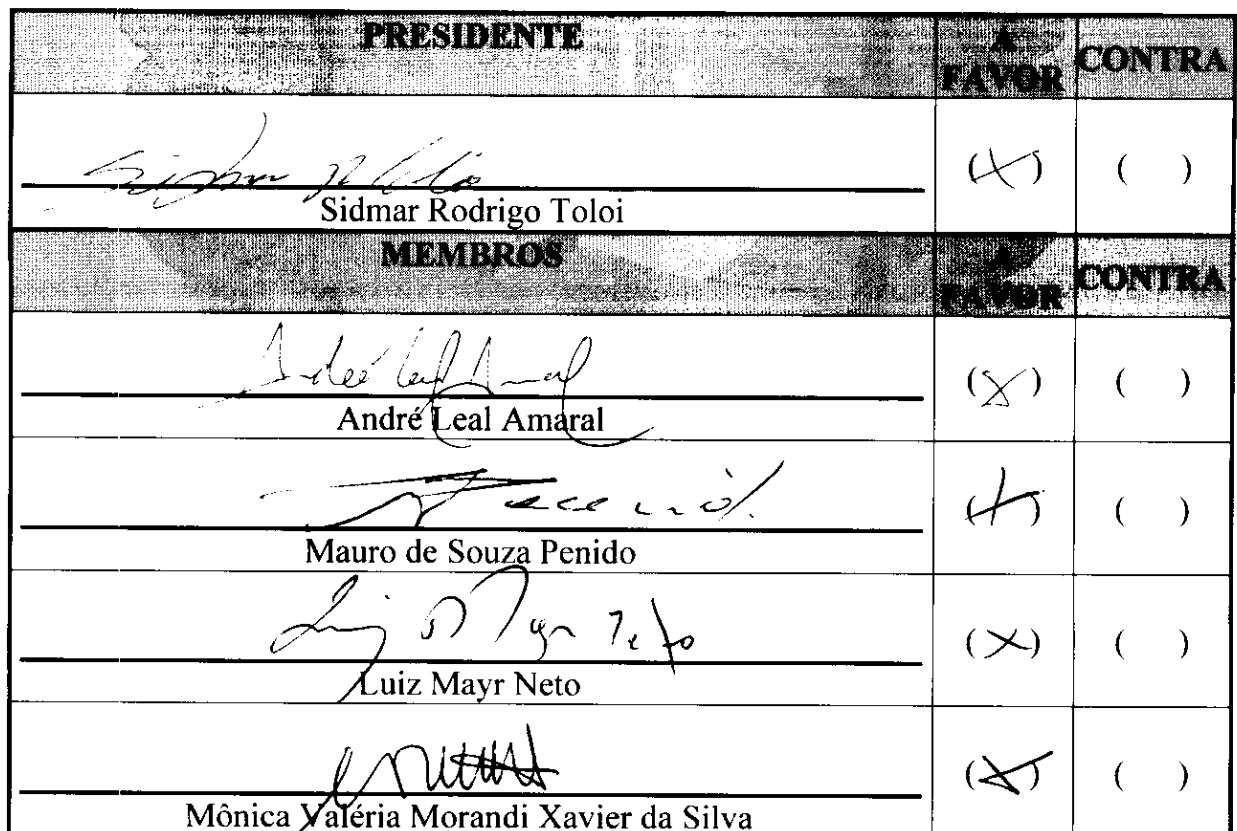 PRESIDENTE A FAVOR CONTRA
(X) ( )
Sidmar Rodrigo Toloi
MEMBROS A FAVOR CONTRA
(X) ( )
André Leal Amaral
(X) ( )
Mauro de Souza Penido
Luiz Mayr Neto
(X) ( )
Luiz Mayr Neto
(X) ( )
Mônica Valéria Morandi Xavier da Silva